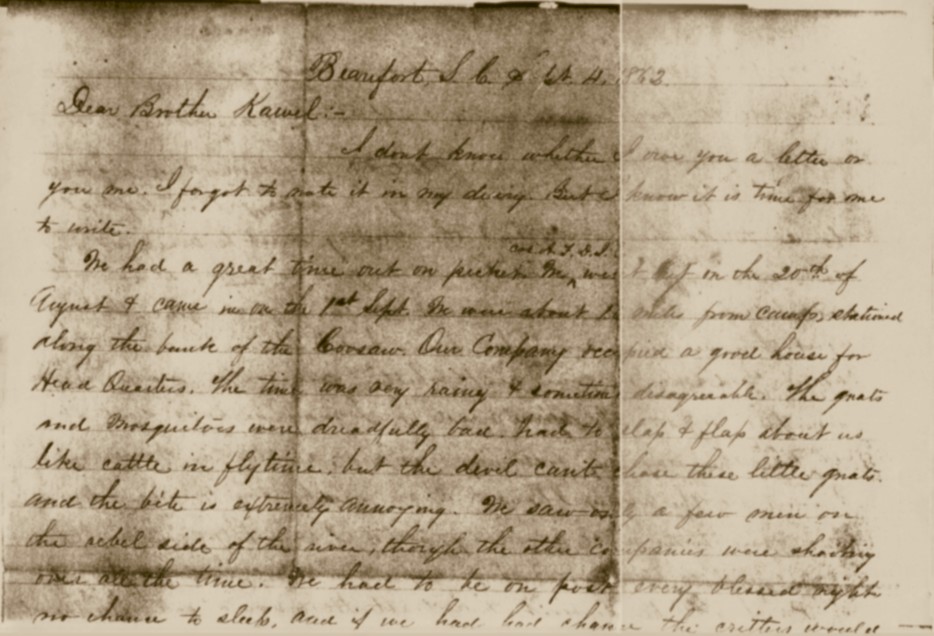 Beaufort, S. C. Sept. 4. 1862.
Dear Brother Kawel:-
I dont know whether I owe you a letter or
you me. I forgot to note it in my diary. But I know it is time for me
to write.
We had a great time out on picket. We went in the 20th of
August & came in on the 1st Sept. We were about miles from camp, stationed
along the bank of the Coosaw. Our Company occupied a good house for
Head Quarters. The time was very rainy & sometimes disagreeable. The gnats
and Mosquitoes were dreadfully bad. had to slap & flap about us
like cattle in flytime. but the devil cant chase these little gnats.
and the bite is extremely annoying. We saw only a few men on
the rebel side of the river, though the other companies were
over all the time. We had to be on post every blessed night
no chance to sleep, and if we had had chance the critters would